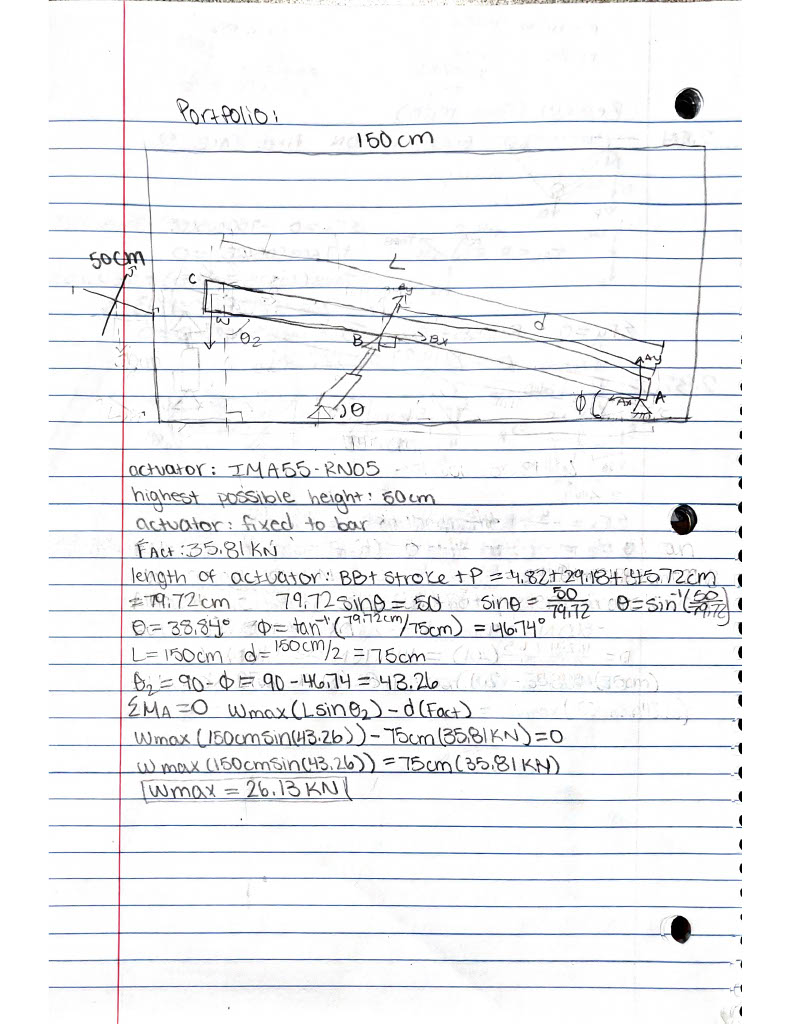 Portfolio:
150cm
50cm
L
C
By
d
W
θ2
B
Bx
Ay
θ
Φ
Ax
A
actuator: IMA55-RN05
highest possible height: 50cm
actuator: fixed to bar
FAct: 35.81KN
length of actuator: BB+ stroke +P = 4.82+29.18+45.72cm
=79.72cm 79.72sinθ = 50 sinθ = 50/79.72 θ=sin⁻¹(50/79.72)
θ= 38.84° Φ= tan⁻¹(79.72cm/75cm) = 46.74°
L= 150cm d= 150cm/2 = 75cm
θ2 = 90-Φ = 90-46.74 = 43.26
ΣMA=0 Wmax(Lsinθ2) - d(Fact)
Wmax(150cmsin(43.26)) - 75cm(35.81KN)=0
Wmax(150cmsin(43.26)) = 75cm(35.81KN)
Wmax = 26.13KN